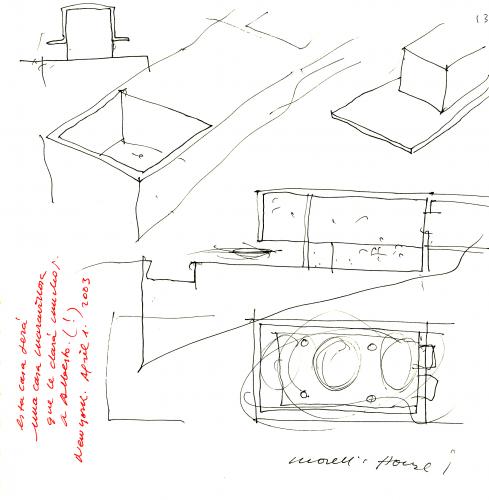 13
esta casa será
una casa maravillosa
que le dará mucho,
a Alberto. (!)
New York. April 1. 2003
Morelli House